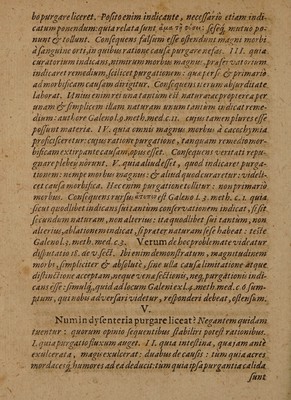 bo purgare liceret. Posito enim indicante, necessario etiam indi-
catum ponendum: quia relata sunt ἅμα τῇ φύσει: seseq́ mutuo po-
nunt & tollunt. Consequens falsum esse ostendunt magni morbi
à sanguine orti, in quibus ratione causæ purgare nefas. III. quia
curatorium indicans, nimirum morbus magnus, præservatorium
indicaret remedium, scilicet purgationem: qua per se & primariò
ad morbificam causam dirigitur. Consequens iterum absurditate
laborat. Hoc enim rei una tantùm est naturâ ac proprietas, per
unam & simplicem illam naturam unum tantùm indicat reme-
dium: authore Galeno l.9. meth. med. c.11. cujus tamen plures esse
possunt materiæ. IV. quia omnis magnus morbus à cacochymia
proficisceretur: cujus ratione purgatio, tanquam remedium mor-
bificam extirpante causam, opus esset. Consequens veritati repu-
gnare plebey nôrunt. V. quia aliud esset, quod indicaret purga-
tionem: nempe morbus magnus: & aliud quod curaretur: videli-
cet causa morbifica. Hoc enim purgatione tollitur: non primariò
morbus. Consequens rursus ἄτοπον est Galeno l.3. meth. c.1. quia
sicut quodlibet indicans sui tantùm conservationem indicat, si sit
secundum naturam, non alterius: ita quodlibet sui tantùm, non
alterius, ablationem indicat, si præter naturam sese habeat: teste
Galeno l.2. meth. med. c.3. Verum de hoc problemate videatur
disputatio 18. de v. sect. Ibi enim demonstratum, magnitudinem
morbi, simpliciter & absolutè, sive ulla causa limitatione atque
distinctione acceptam, neque venæ sectionis, neq́ purgationis indi-
cans esse: simulq́, quid ad locum Galeni ex l.4. meth. med. c.6. sum-
ptum, qui nobis adversari videtur, responderi debeat, ostensum.
V.
Num in dysenteria purgare liceat? Negantem quidam
tuentur: quorum opinio sequentibus stabiliri potest rationibus.
I. quia purgatio fluxum auget. II. quia intestina, quæ jam antè
exulcerata, magis exulcerat: duabus de causis: tum quia acres
mordacesq́, humores ad ea deducit: tum quia ipsa purgantia calida
sunt